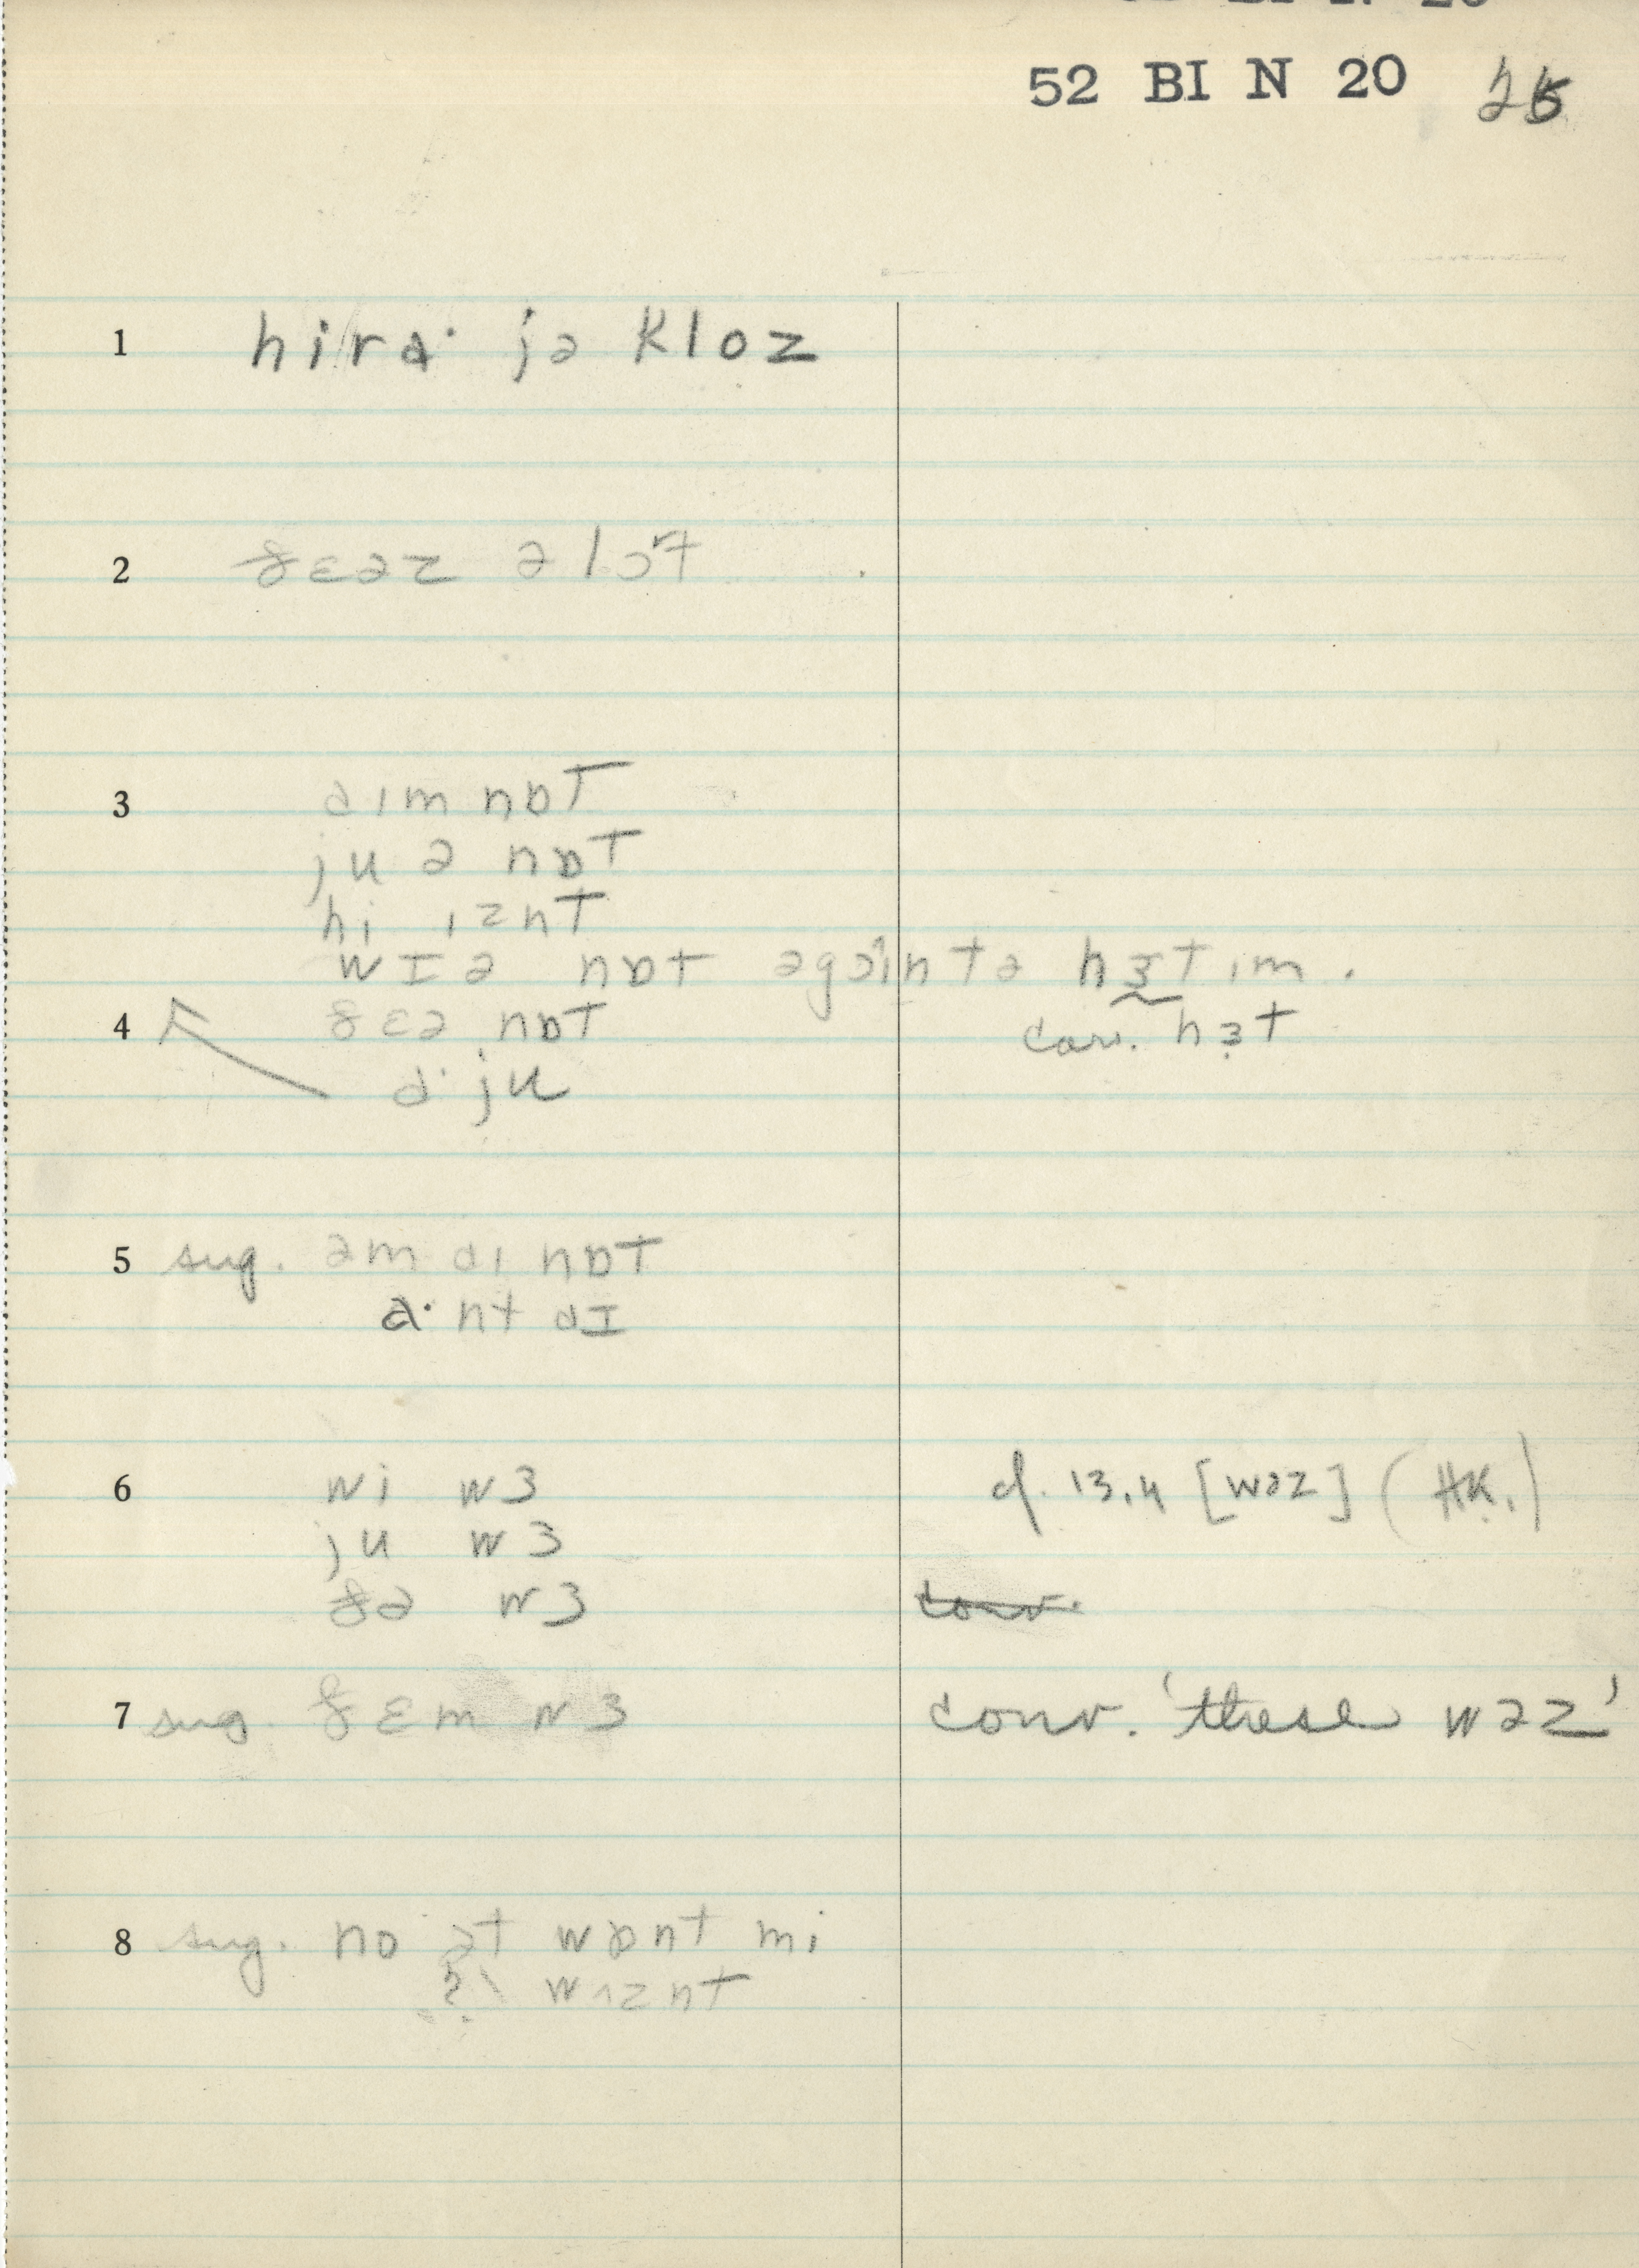 52 BI N 20
1 hi ra· jə kloz
2 ðɛəz ə lɔt
3 aɪm nɒt
ju ə nɒt
hi ɪznt
wɪ ə nɒt əgɔɪn tə hɜt ɪm.
4 ðɛə nɒt
conv. hɜt
a· ju
5 sug. əm aɪ nɒt
a·nt aɪ
6 wi wɜ
cf. 13.4 [wəz] (HK.)
ju wɜ
ðə wɜ
conv.
7 sug. ðɛm wɜ
conv. 'these wəz'
8 sug. no ət wɒnt mi
? wɪznt